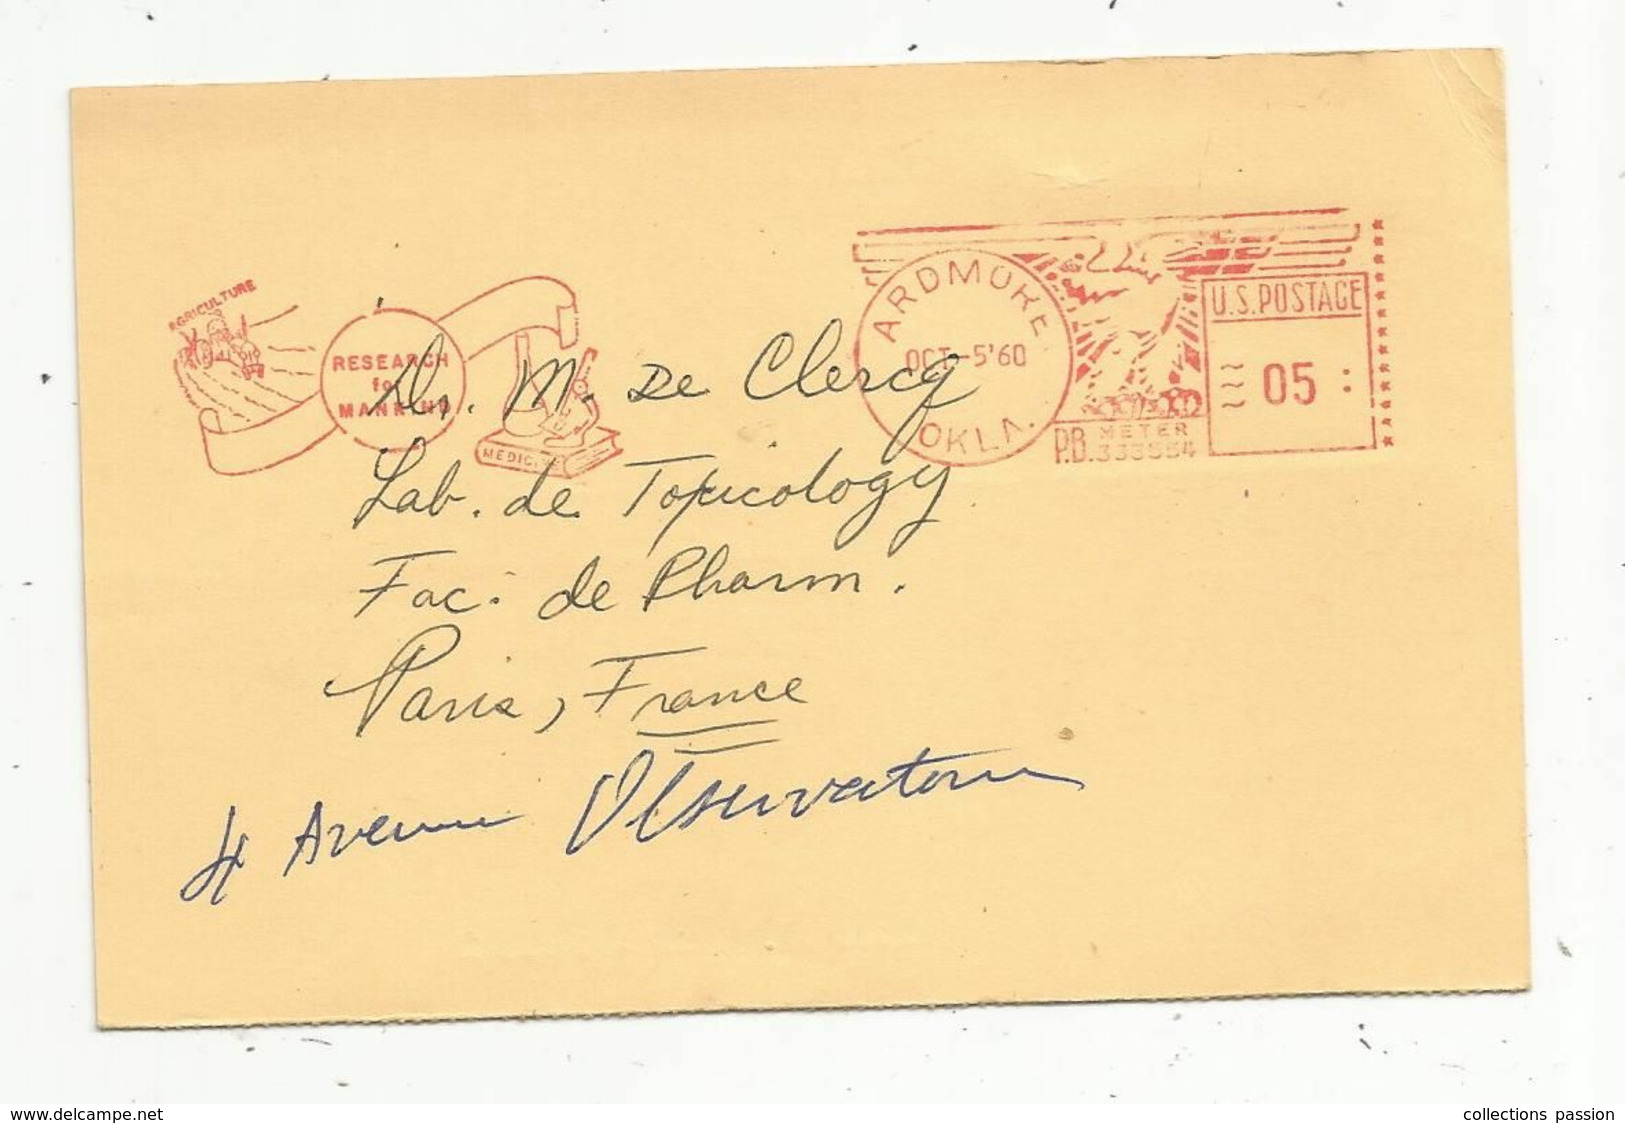 AGRICULTURE
RESEARCH
for
MANKIND
MEDICINE
ARDMORE
OCT -5'60
OKLA.
U.S. POSTAGE
05
P.B. METER
333554
Dr. M. De Clercq
Lab. de Toxicology
Fac. de Pharm.
Paris, France
4 Avenue Observatoire
www.delcampe.net
collections passion